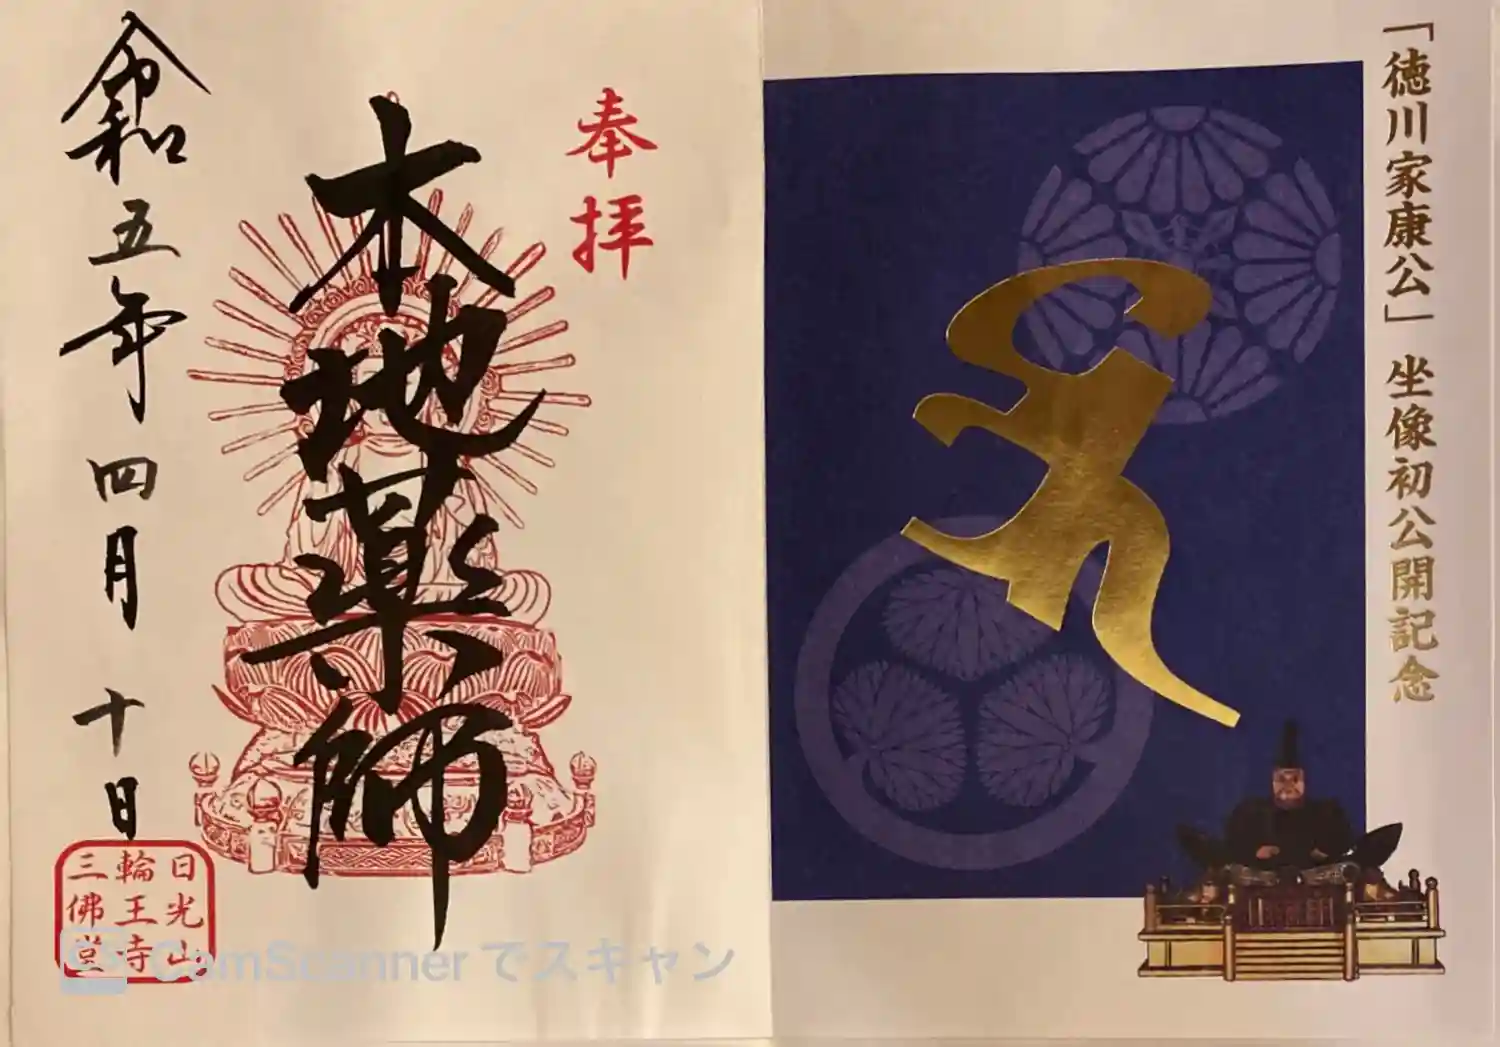 「徳川家康公」坐像初公開記念
奉拝
本地薬師
令和五年四月十日
日光山
輪王寺
三佛堂
CS CamScanner でスキャン